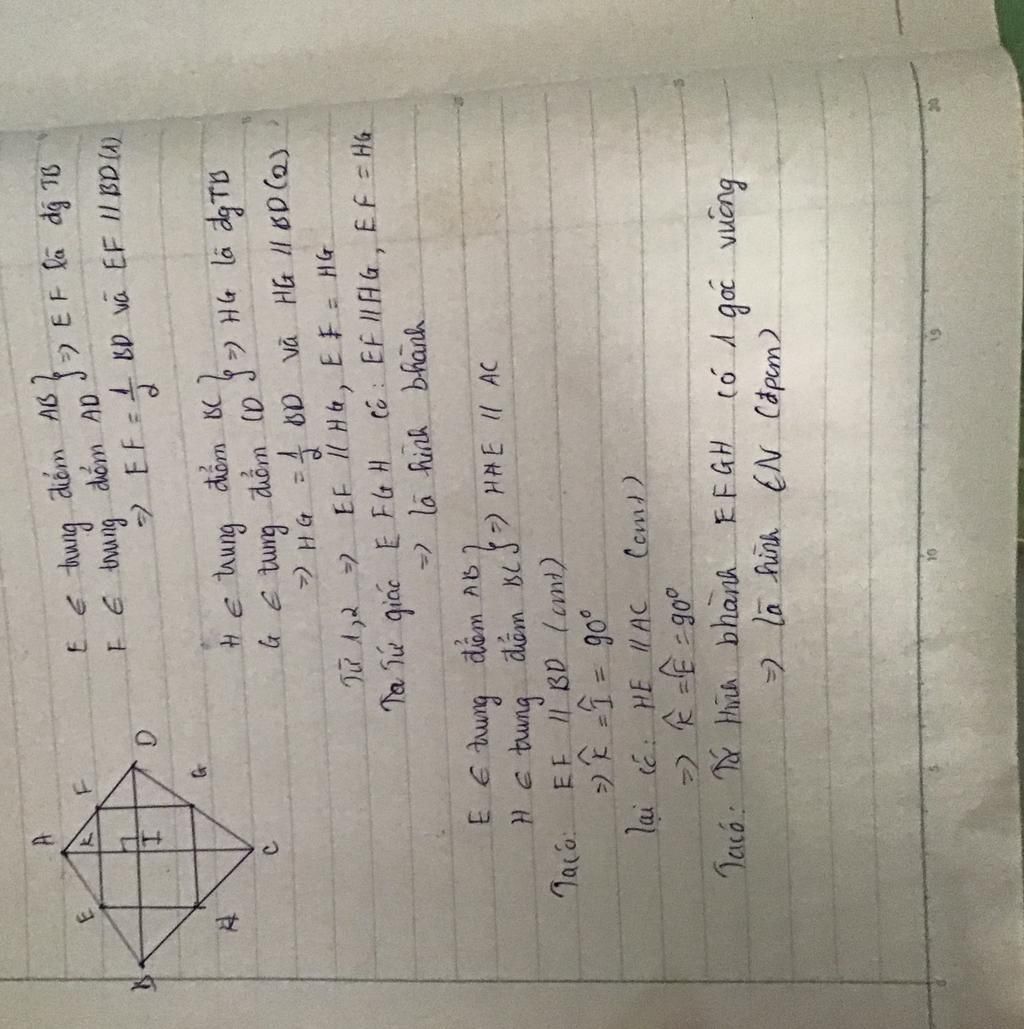 A
E K F
B I D
H G
C
E ∈ trung điểm AB } => EF là đg TB
F ∈ trung điểm AD
=> EF = 1/2 BD và EF // BD (1)
H ∈ trung điểm BC } => HG là đg TB
G ∈ trung điểm CD
=> HG = 1/2 BD và HG // BD (2)
Từ 1,2 => EF // HG, EF = HG
Tứ giác EFGH có: EF // HG, EF = HG
=> là hình bhành
E ∈ trung điểm AB } => HE // AC
H ∈ trung điểm BC
Ta có: EF // BD (cmt)
=> K̂ = Î = 90°
lại có: HE // AC (cmt)
=> K̂ = Ê = 90°
Ta có: Hình bhành EFGH có 1 góc vuông
=> là hình CN (đpcm)